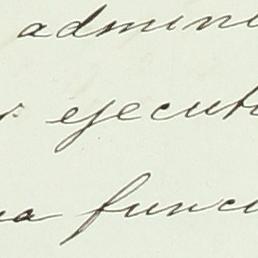 admini
r ejecuti
na funci